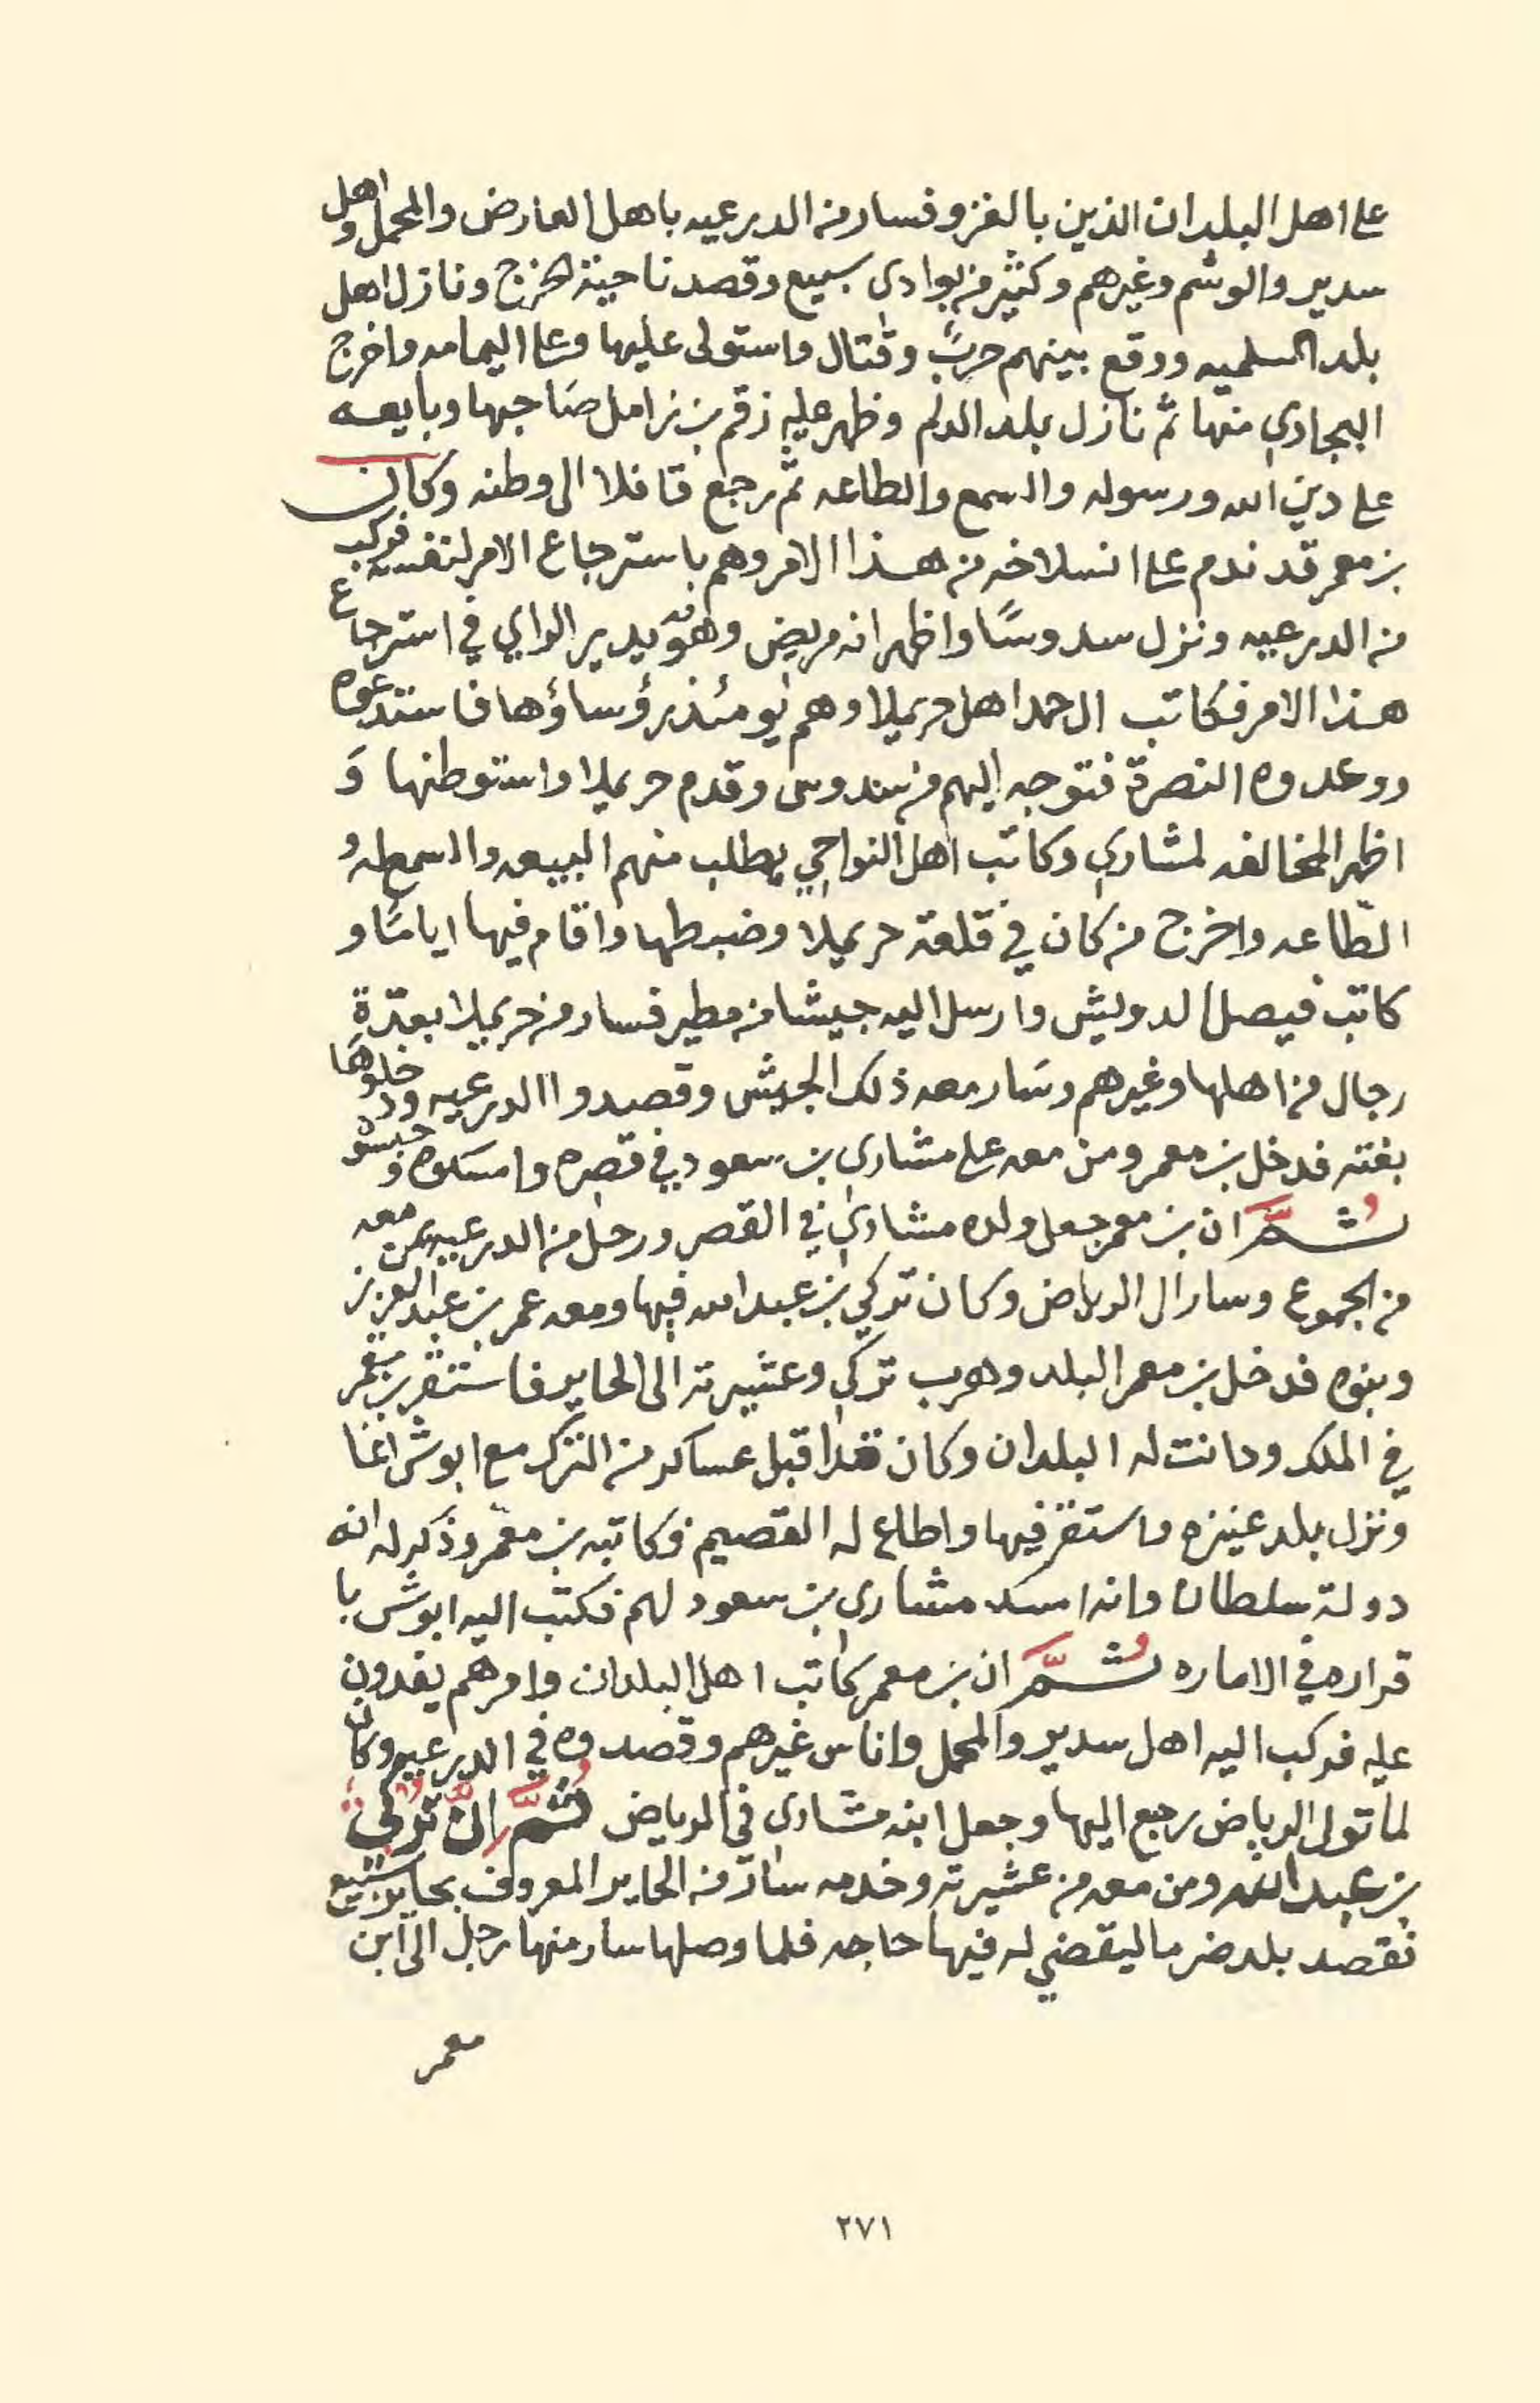 على اهل البلدان الذين بالغزو فسار من الدرعيه باهل العارض والمحمل واهل
سدير والوشم وغيرهم وكثير من بوادي سبيع وقصد ناحية الخرج ونازل اهل
بلد السلميه ووقع بينهم حربٌ وقتال واستولى عليها وعلى اليمامه واخرج
البجادي منها ثم نازل بلد الدلم وظهر عليه زقم بن زامل صاحبها وبايعه
على دين الله ورسوله والسمع والطاعه ثم رجع قافلا الى وطنه وكان
بن معمر قد ندم على انسلاخه من هذا الامر وهم باسترجاع الامر لنفسه فركب
من الدرعيه ونزل سدوسًا واظهر انه مريض وهو يدير الراي في استرجاع
هذا الامر فكاتب ال حمد اهل حريملا وهم يومئذ رؤساؤها فاستدعوه
ووعدوه النصرة فتوجه اليهم من سدوس وقدم حريملا واستوطنها وَ
اظهر المخالفه لمشاري وكاتب اهل النواحي يطلب منهم البيعه والسمع له و
الطّاعه واخرج من كان في قلعة حريملا وضبطها واقام فيها ايامًا و
كاتب فيصل الدويش وارسل اليه جيشا من مطير فسار من حريملا بعدّة
رجال من اهلها وغيرهم وسَار معه ذلك الجيش وقصدوا الدرعيه ودخلوها
بغته فدخل بن معمر ومن معه على مشاري بن سعود في قصره وامسكوه وحبسو
ثُمَّ ان بن معمر جعل ولده مشاري في القصر ورحل من الدرعيه بمن معه
من الجموع وسار ال الرياض وكان تركي بن عبد الله فيها ومعه عمر بن عبد العزيز
وبنوه فدخل بن معمر البلد وهرب تركي وعشيرته الى الحاير فاستقر بن معمر
في الملك ودانت له البلدان وكان قد اقبل عساكر من الترك مع ابوش اغا
ونزل بلد عنيزه واستقر فيها واطاع له القصيم فكاتبه بن معمر وذكر له انه
دولة سلطان وانه امسك مشاري بن سعود لهم فكتب اليه ابوش با
قراره في الاماره ثُمَّ ان بن معمر كاتب اهل البلدان وامرهم يفدون
عليه فركب اليه اهل سدير والمحمل واناس غيرهم وقصدوه في الدرعيه وكان
لما تولى الرياض رجع اليها وجعل ابنه مشاري في الرياض ثُمَّ اِنَّ تُركي
بن عبد الله ومن معه من عشيرته وخدمه سار من الحاير المعروف بحاير سبيع
فقصد بلد ضرما ليقضي له فيها حاجه فلما وصلها سار منها رجل الى ابن
معمر
٢٧١